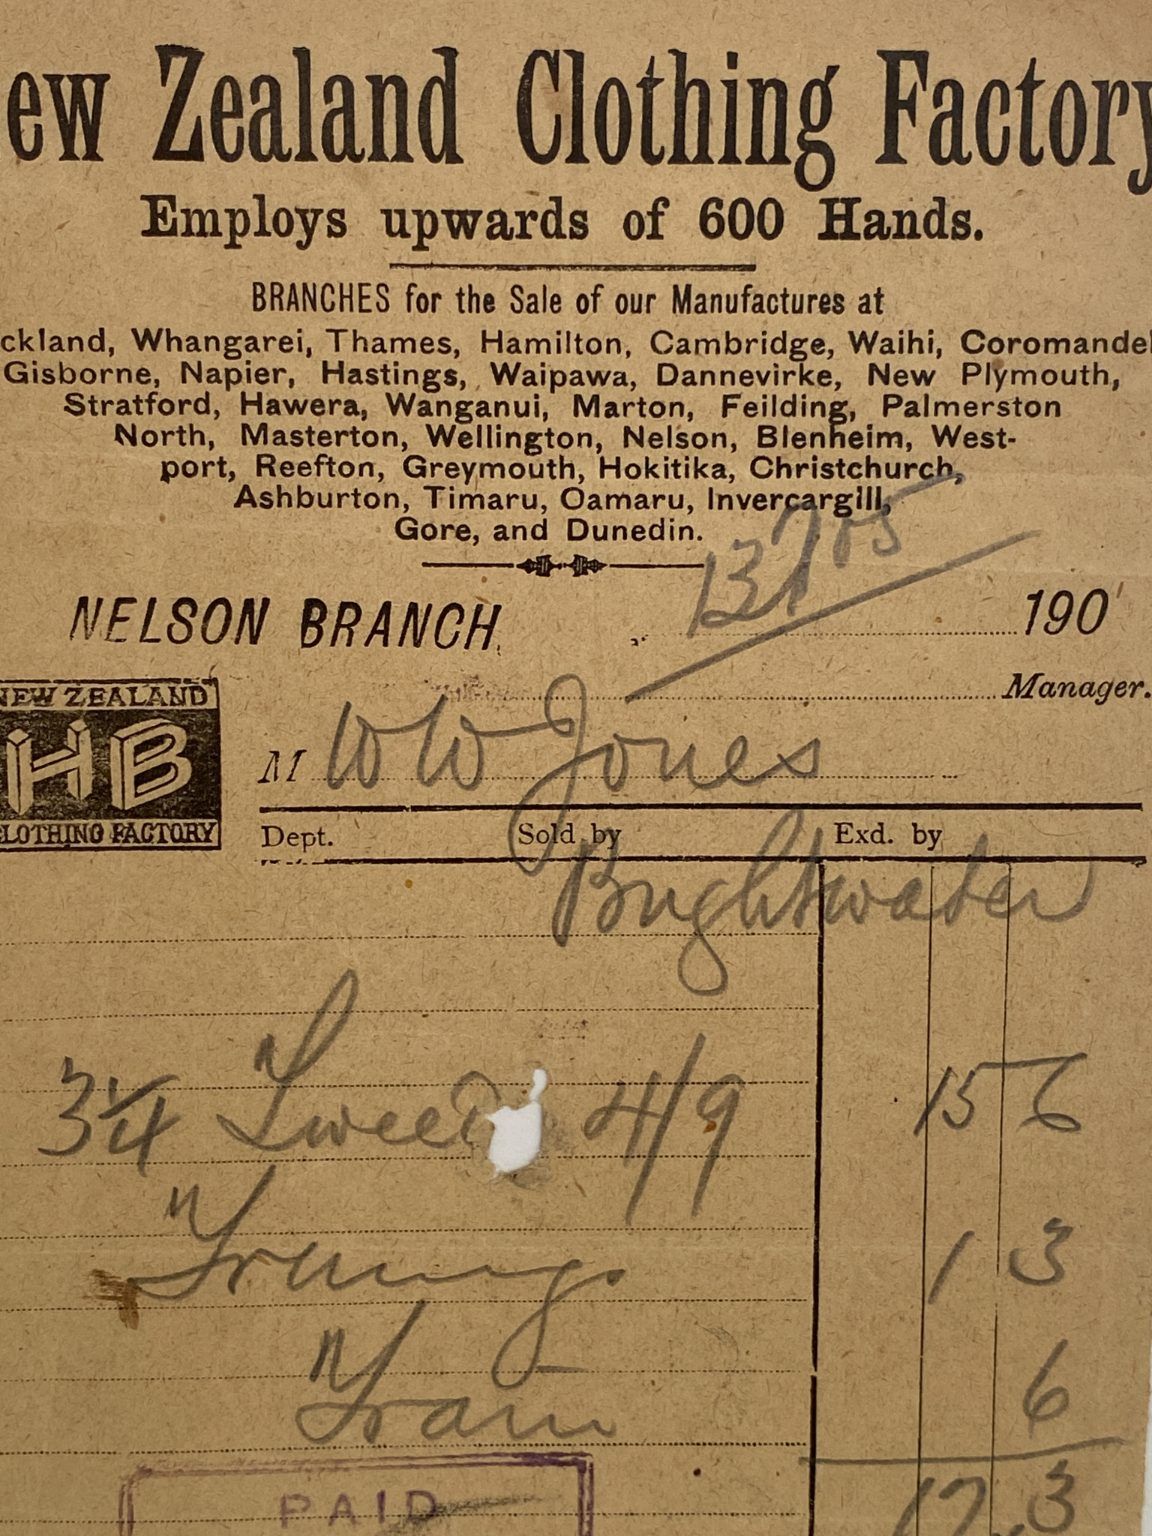 ew Zealand Clothing Factory
Employs upwards of 600 Hands.
BRANCHES for the Sale of our Manufactures at
ckland, Whangarei, Thames, Hamilton, Cambridge, Waihi, Coromandel
Gisborne, Napier, Hastings, Waipawa, Dannevirke, New Plymouth,
Stratford, Hawera, Wanganui, Marton, Feilding, Palmerston
North, Masterton, Wellington, Nelson, Blenheim, West-
port, Reefton, Greymouth, Hokitika, Christchurch,
Ashburton, Timaru, Oamaru, Invercargill,
Gore, and Dunedin.
NELSON BRANCH, 13/7/05 190
Manager.
NEW ZEALAND
HB
CLOTHING FACTORY
M W W Jones
Dept. Sold by Exd. by
Brightwater
3 1/4 Tweed 4/9 15 6
1 3
Tram 6
17 3
PAID